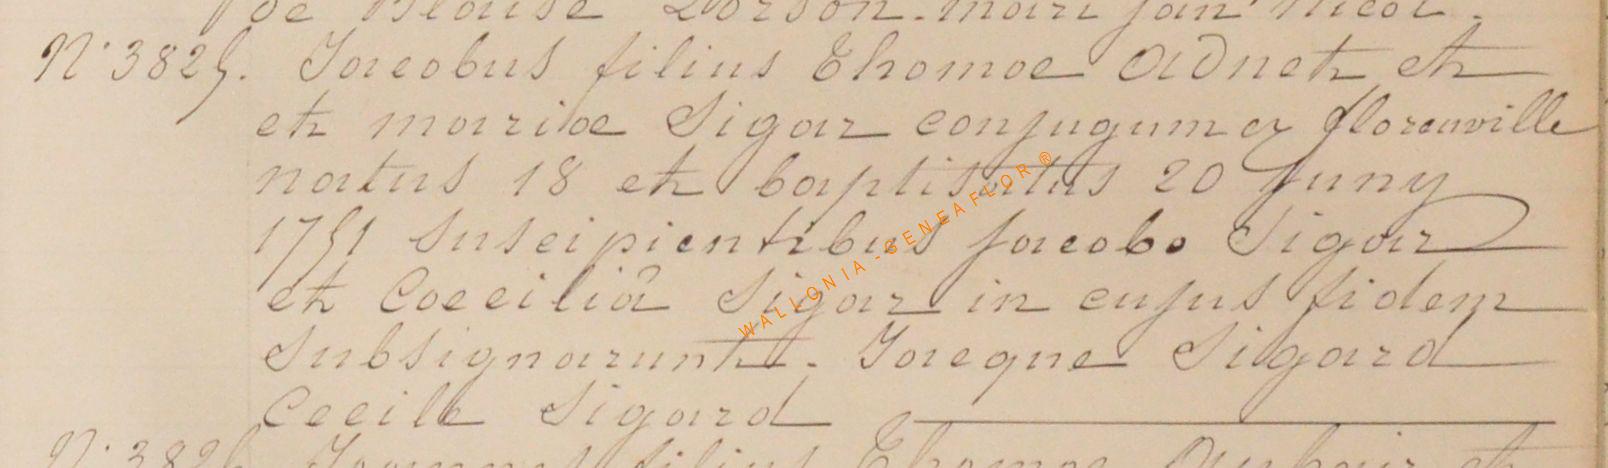 de Blaise Lorson. mari jan nicol.
N.° 3825. Jacobus filius Thomoe Adnet et
et mariae Sigar conjugum ex florenville
natus 18 et baptisatus 20 Juny
1751 Suscipientibus Jacobo Sigar
et Coeciliâ Sigar in cujus fidem
Subsignarunt. Jacque Sigard
Cecile Sigard
N.° 382 Joannes filius Thomoe et
WALLONIA-GENEAFLOR®